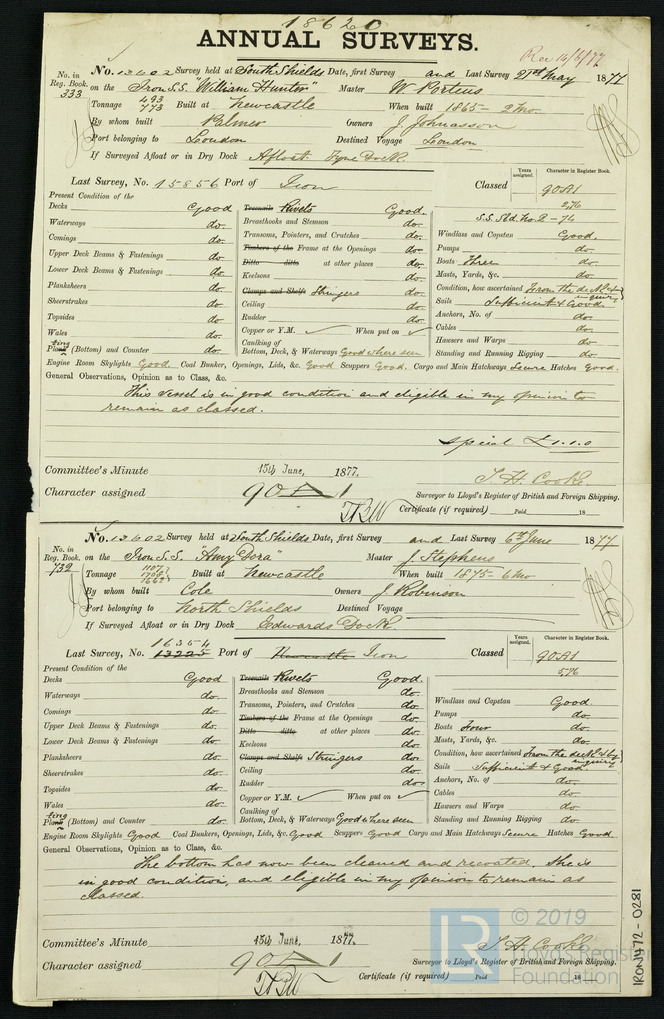 18620
ANNUAL SURVEYS.
Rec 14/6/77
No. in Reg. Book. 333
No. 13602 Survey held at South Shields Date, first Survey and Last Survey 21st May 1877
on the Iron S.S. "William Hunter" Master W. Porteus
Tonnage 493 773 Built at Newcastle When built 1865 - 2 mo.
By whom built Palmer Owners J. Johnasson
Port belonging to London Destined Voyage London
If Surveyed Afloat or in Dry Dock Afloat Tyne Dock
Last Survey, No. 15856 Port of Iron Classed
Years assigned. Character in Register Book.
90A1
2,76
S.S. Sld. No. 2 - 74
Present Condition of the
Decks Good
Waterways do.
Comings do.
Upper Deck Beams & Fastenings do.
Lower Deck Beams & Fastenings do.
Planksheers do.
Sheerstrakes do.
Topsides do.
Wales do.
Plating (Bottom) and Counter do.
Treenails Rivets Good.
Breasthooks and Stemson do.
Transoms, Pointers, and Crutches do.
Timbers of the Frame at the Openings do.
Ditto ditto at other places do.
Keelsons do.
Clamps and Shelfs Stringers do.
Ceiling do.
Rudder do.
Copper or Y.M. When put on
Caulking of
Bottom, Deck, & Waterways Good where seen
Windlass and Capstan Good.
Pumps do.
Boats Three do.
Masts, Yards, &c. do.
Condition, how ascertained From the deck & by enquiry
Sails Sufficient & Good.
Anchors, No. of do.
Cables do.
Hawsers and Warps do.
Standing and Running Rigging do.
Engine Room Skylights Good. Coal Bunker, Openings, Lids, &c. Good Scuppers Good. Cargo and Main Hatchways Secure Hatches Good.
General Observations, Opinion as to Class, &c.
This vessel is in good condition and eligible in my opinion to
remain as classed.
Special £1.1.0
Committee's Minute 15th June, 1877.
Character assigned 90A1
T. H. Cooke.
Surveyor to Lloyd's Register of British and Foreign Shipping.
Certificate (if required) Paid 18
No. in Reg. Book. 732
No. 13602 Survey held at South Shields Date, first Survey and Last Survey 6th June 1877
on the Iron S.S. "Amy Dora" Master J. Stephens
Tonnage 1107 1708 1662 Built at Newcastle When built 1875 - 6 mo
By whom built Cole Owners J. Robinson
Port belonging to North Shields Destined Voyage
If Surveyed Afloat or in Dry Dock Edwards Dock.
16354
Last Survey, No. 13225 Port of Newcastle Iron Classed
Years assigned. Character in Register Book.
90A1
5,76
Present Condition of the
Decks Good
Waterways do.
Comings do.
Upper Deck Beams & Fastenings do.
Lower Deck Beams & Fastenings do.
Planksheers do.
Sheerstrakes do.
Topsides do.
Wales do.
Plating (Bottom) and Counter do.
Treenails Rivets Good.
Breasthooks and Stemson do.
Transoms, Pointers, and Crutches do.
Timbers of the Frame at the Openings do.
Ditto ditto at other places do.
Keelsons do.
Clamps and Shelfs Stringers do.
Ceiling do.
Rudder do.
Copper or Y.M. When put on
Caulking of
Bottom, Deck, & Waterways Good where seen
Windlass and Capstan Good.
Pumps do.
Boats Four do.
Masts, Yards, &c. do.
Condition, how ascertained From the deck & by enquiry
Sails Sufficient & Good
Anchors, No. of do.
Cables do.
Hawsers and Warps do.
Standing and Running Rigging do.
Engine Room Skylights Good Coal Bunkers, Openings, Lids, &c. Good Scuppers Good Cargo and Main Hatchways Secure Hatches Good
General Observations, Opinion as to Class, &c.
The bottom has now been cleaned and recoated. She is
in good condition, and eligible in my opinion to remain as
classed.
Committee's Minute 15th June, 1877.
Character assigned 90A1
T. H. Cooke
Surveyor to Lloyd's Register of British and Foreign Shipping.
Certificate (if required) Paid 18
LR © 2019
Lloyd's Register
Foundation
IRON472-0281